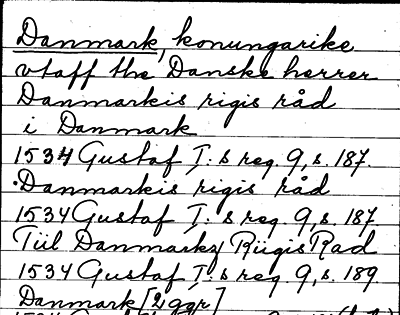 Danmark, konungarike
vtaff the Danske herrer
Danmarkis rigis råd
i Danmark
1534 Gustaf I: s reg. 9, s. 187.
Danmarkis rigis råd
1534 Gustaf I: s reg. 9, s. 187
Tiil Danmarkz Riigis Rad
1534 Gustaf I: s reg. 9, s. 189
Danmark [2 ggr]